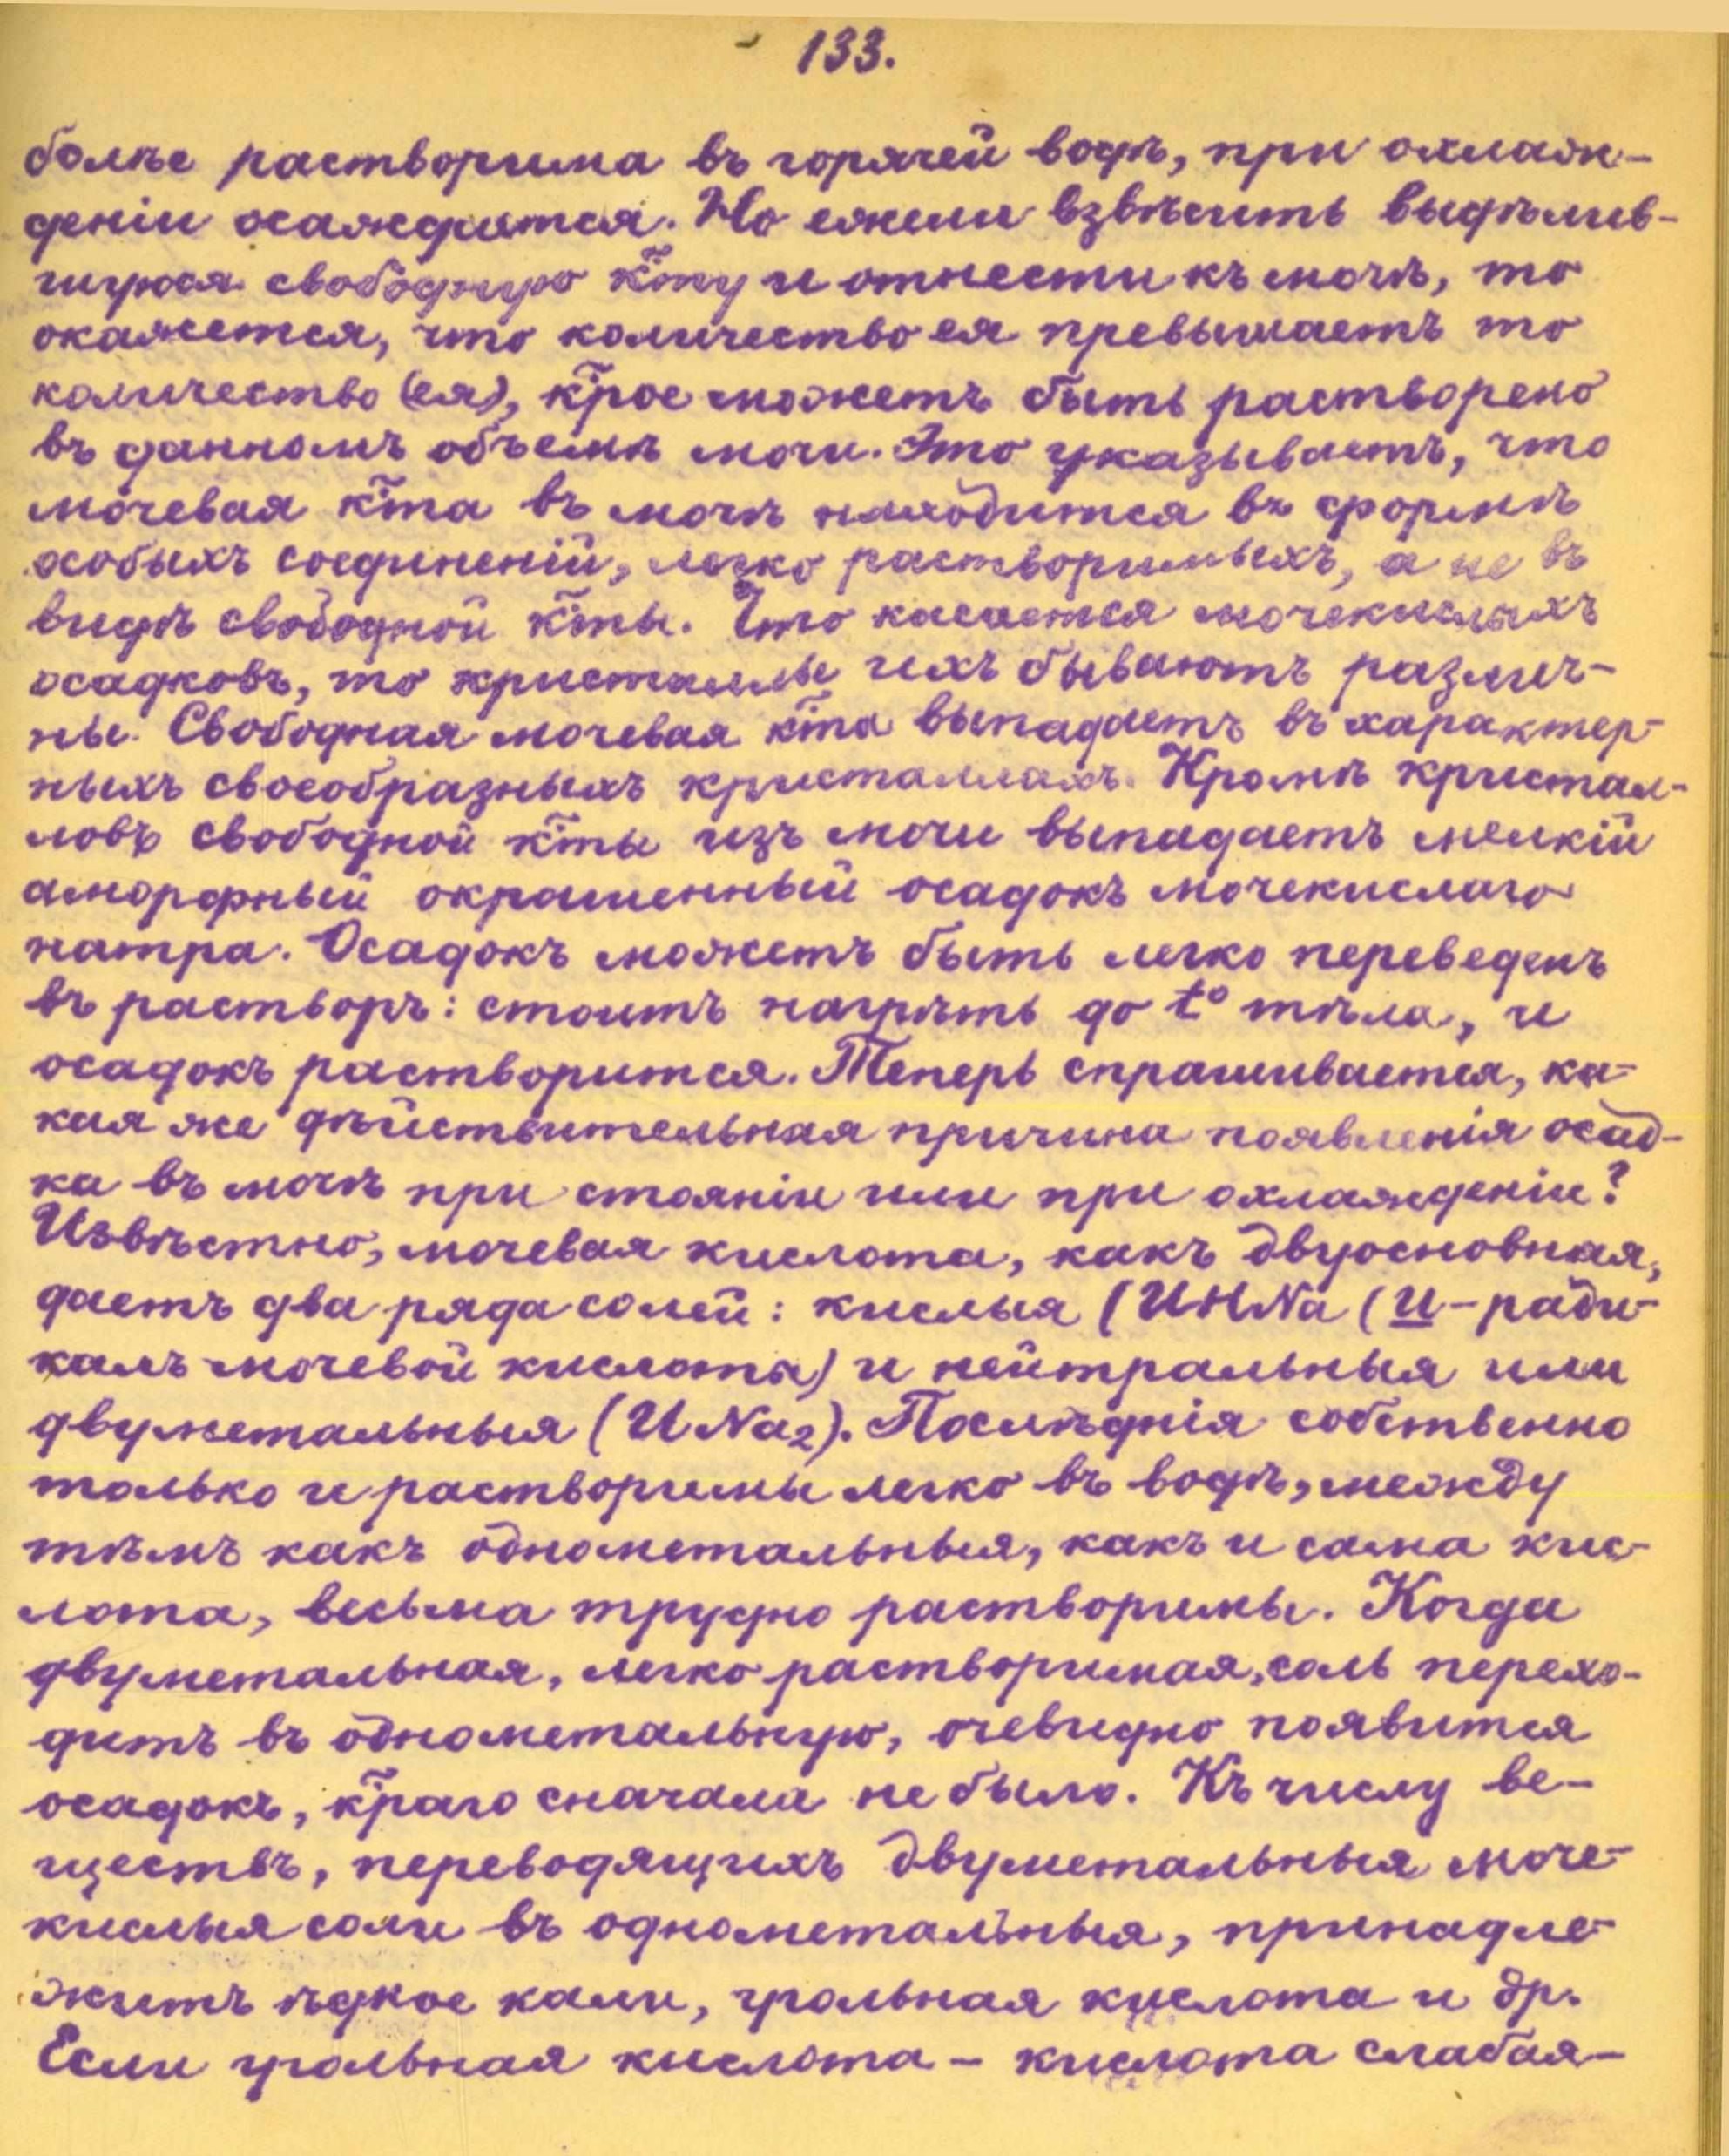 133.
болѣе растворима въ горячей водѣ, при охлаж-
деніи осаждается. Но ежели взвѣсить выдѣлив-
шуюся свободную к͠ту и отнести къ мочѣ, то
окажется, что количество ея превышаетъ то
количество (ея), к͠рое можетъ быть растворено
въ данномъ объемѣ мочи. Это указываетъ, что
мочевая к͠та въ мочѣ находится въ формѣ
особыхъ соединеній, легко растворимыхъ, а не въ
видѣ свободной к͠ты. Что касается мочекислыхъ
осадковъ, то кристаллы ихъ бываютъ различ-
ны. Свободная мочевая к͠та выпадаетъ въ характер-
ныхъ своеобразныхъ кристаллахъ. Кромѣ кристал-
ловъ свободной к͠ты изъ мочи выпадаетъ мелкій
аморфный окрашенный осадокъ мочекислаго
натра. Осадокъ можетъ быть легко переведенъ
въ растворъ: стоитъ нагрѣть до t° тѣла, и
осадокъ растворится. Теперь спрашивается, ка-
кая же дѣйствительная причина появленія осад-
ка въ мочѣ при стояніи или при охлажденіи?
Извѣстно, мочевая кислота, какъ двуосновная,
даетъ два ряда солей: кислыя (UHNa (U - ради-
калъ мочевой кислоты) и нейтральныя или
двуметальныя (UNa₂). Послѣднія собственно
только и растворимы легко въ водѣ, между
тѣмъ какъ однометальныя, какъ и сама кис-
лота, весьма трудно растворимы. Когда
двуметальная, легко растворимая, соль перехо-
дитъ въ однометальную, очевидно появится
осадокъ, к͠раго сначала не было. Къ числу ве-
ществъ, переводящихъ двуметальныя моче-
кислыя соли въ однометальныя, принадле-
житъ ѣдкое кали, угольная кислота и др.
Если угольная кислота - кислота слабая -